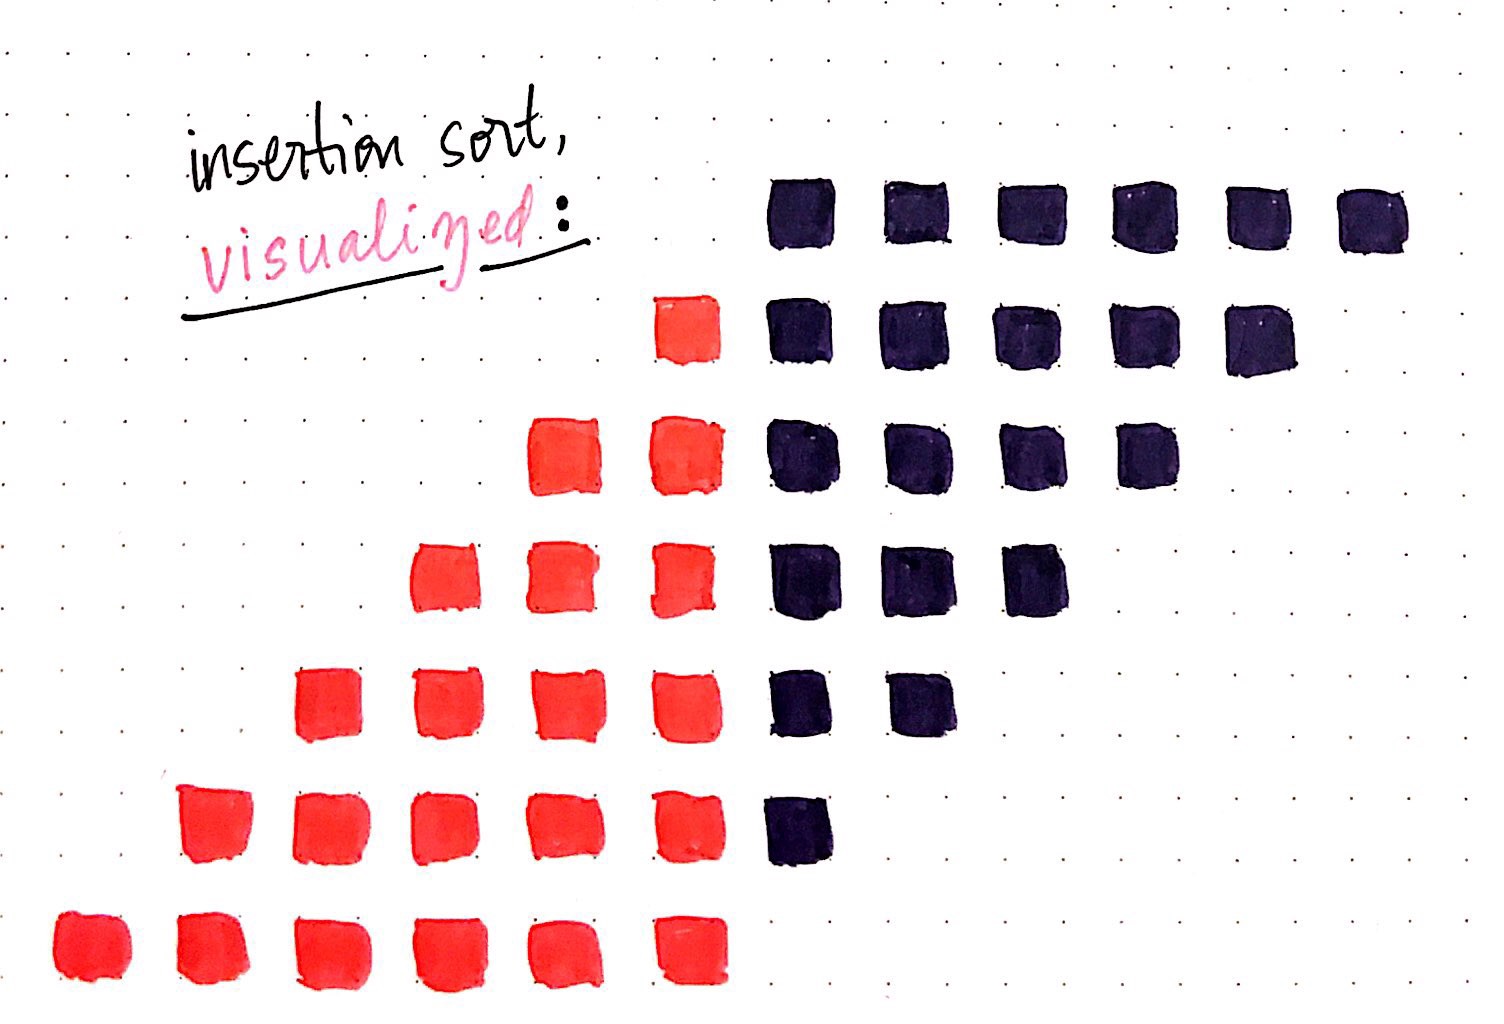 insertion sort,
visualized: